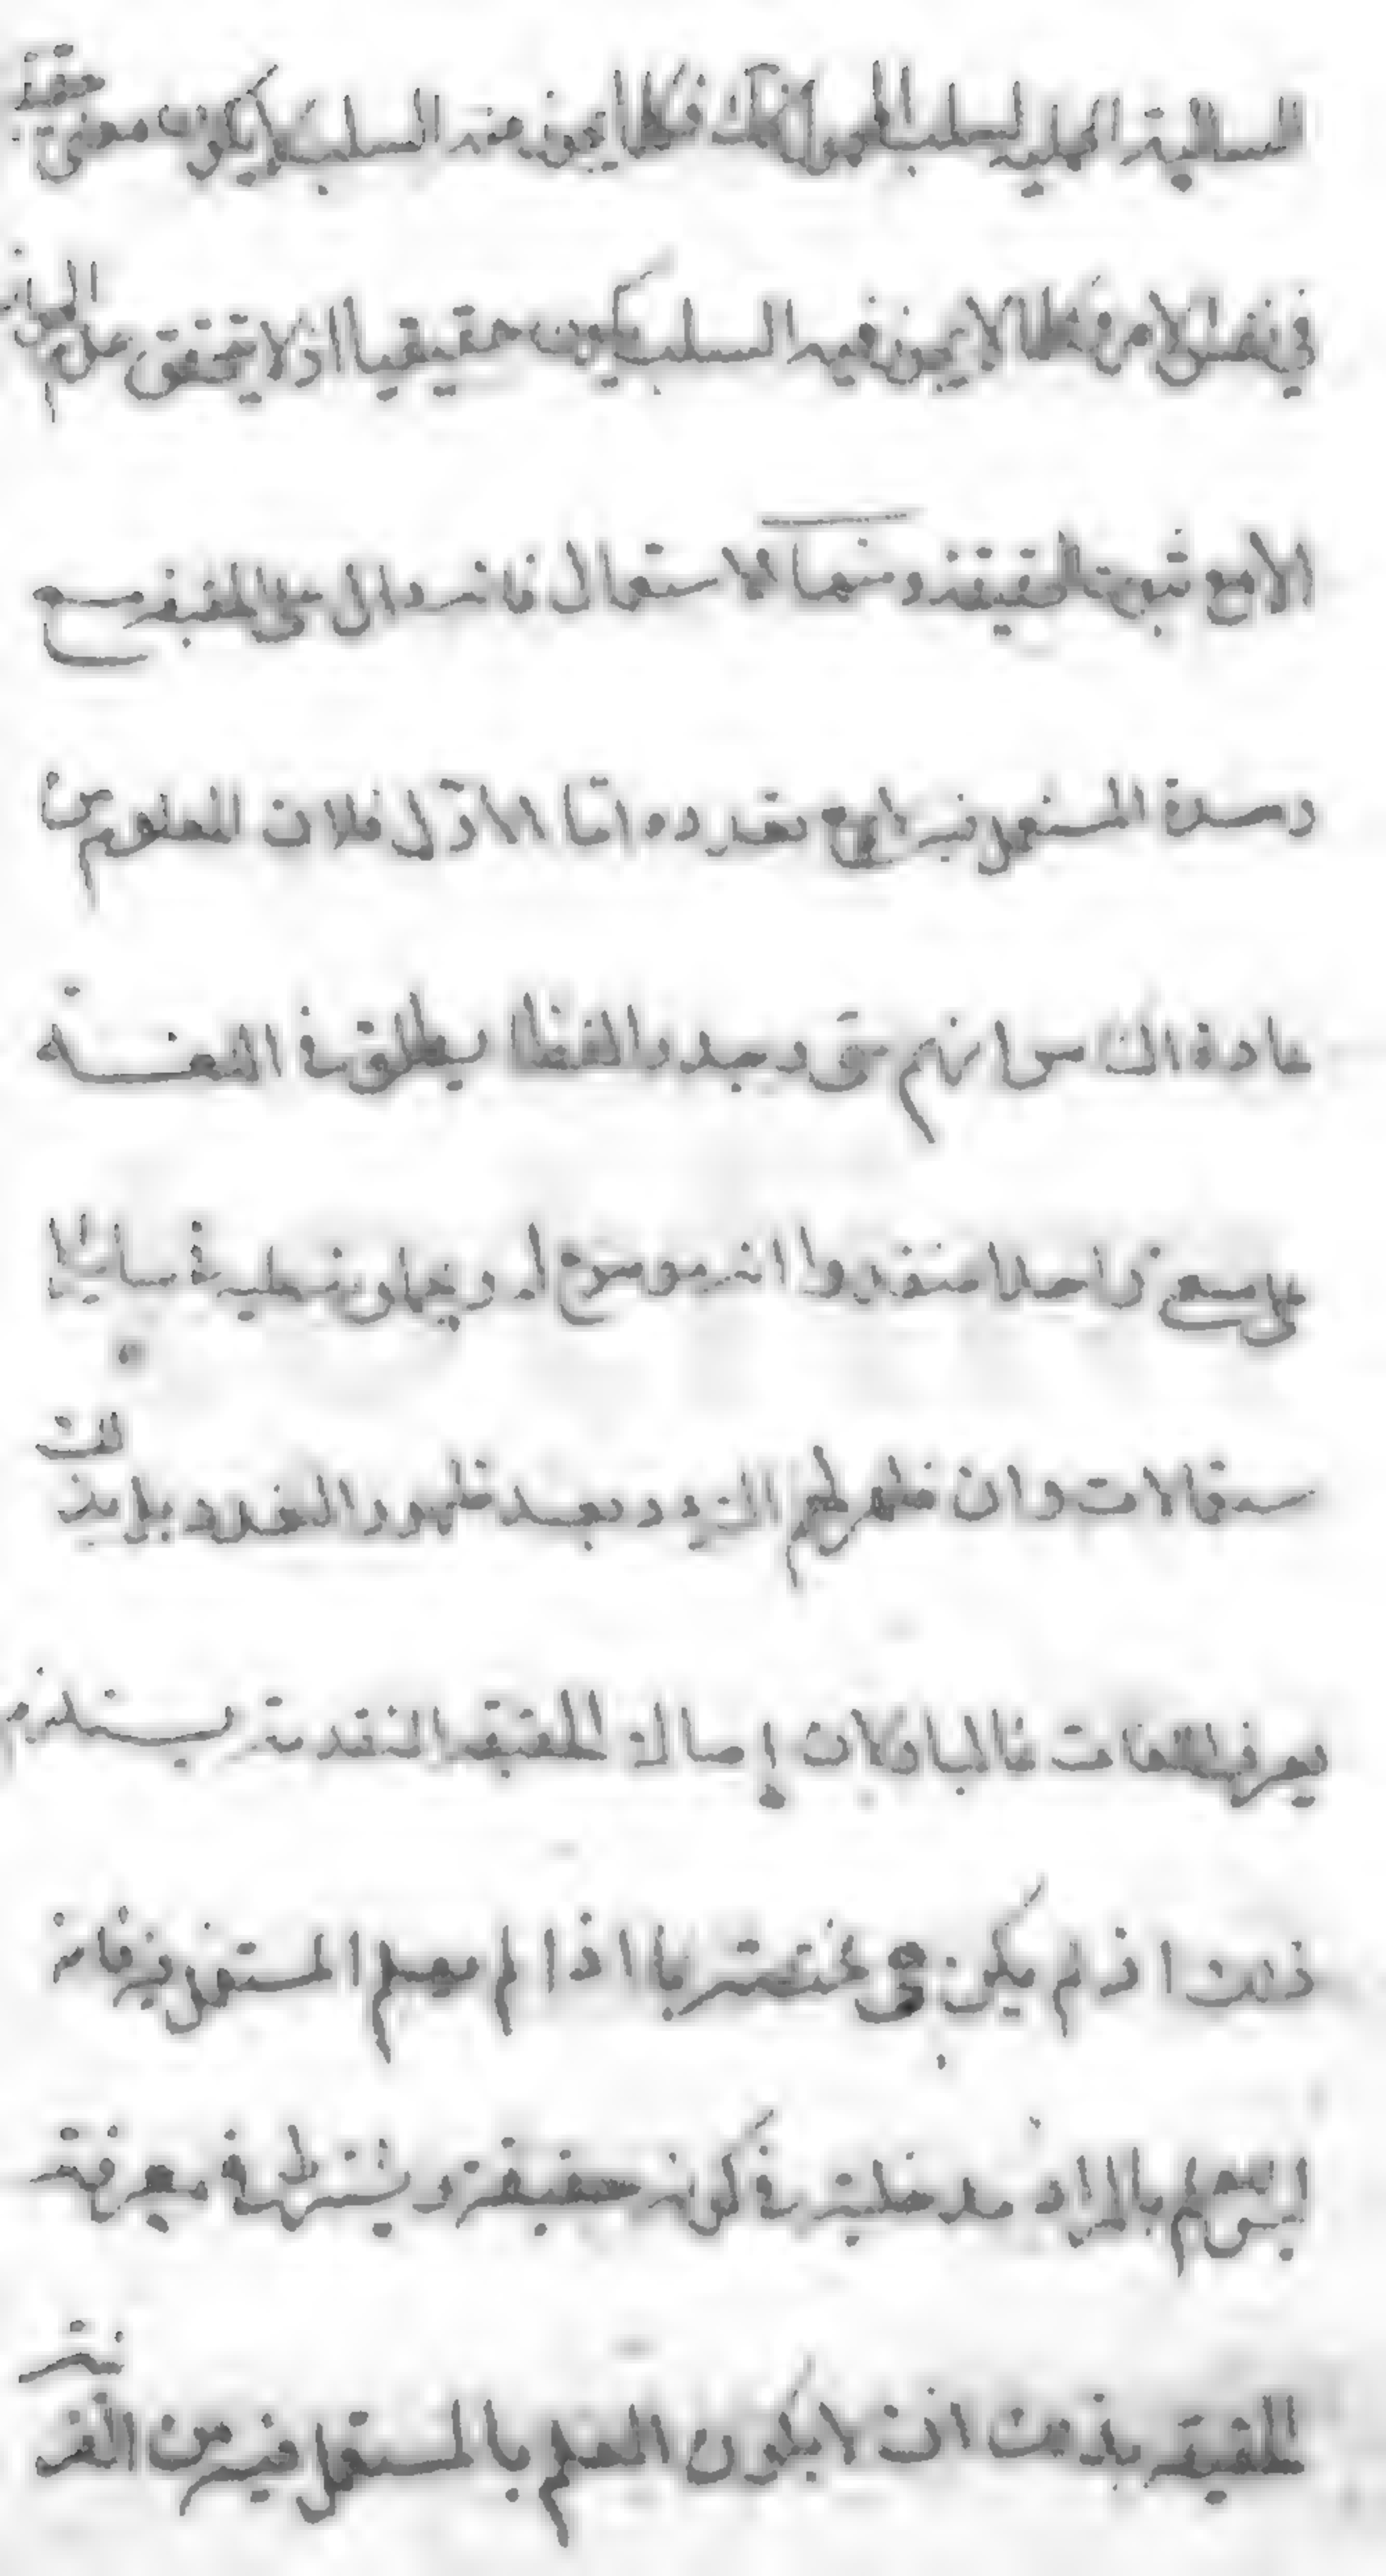 السالبة الحملية لسلب المحمول فكلما يجوز منه السلب لا يكون معنى حقيقيا
في نفس الامر وكلما لا يجوز فيه السلب يكون حقيقيا اذ لا يتحقق علم
الا مع ثبوت الحقيقة ومنها الاستعمال فانه دال على الحقيقة مع
وحدة المستعمل فيه لا مع تعدده اما الاول فلان المعلوم من
عادة الناس انهم متى وجدوا لفظا يطلق في اللغة
على معنى واحد اعتقدوا انه موضوع له ويجرون عليه في سائر
ستعمالات وان ظهر لهم الردد بعد ظهور التعدد بل بذلك
يعرف اللغات غالبا ولان اصالة الحقيقة المتقدمة يستلزم
ذلك اذ لم يكن هي مختصة بما اذا لم يعلم المستعمل فيه فانه
ليس للعلم بالمراد مدخلية في كونه حقيقة ويشترط في معرفة
الحقيقة بذلك ان لا يكون العلم بالمستعمل فيه من القرينة